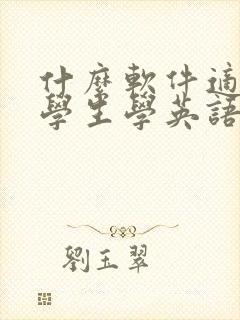 什麼軟件適
學生學英語
劉玉翠